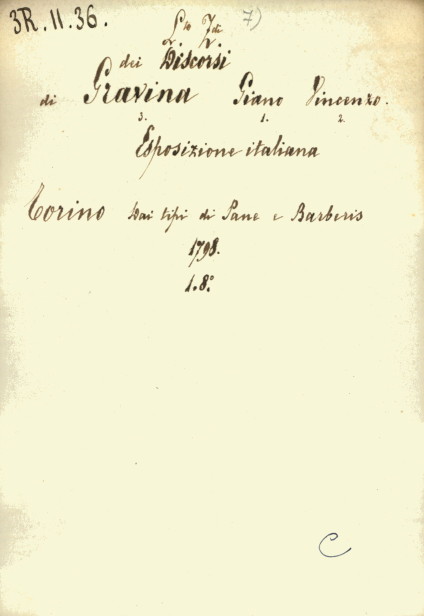 3R. 11. 36.
7)
dei Discorsi
di Gravina Giano Vincenzo.
3. 1. 2.
Esposizione italiana
Torino Dai tipi di Pane e Barberis
1798.
1. 8.°
C